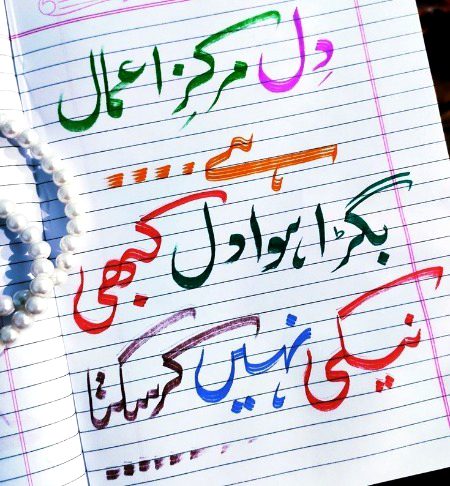 دِل مرکزِ اعمال
ہے ....
بگڑا ہوا دل کبھی
نیکی نہیں کرسکتا
........